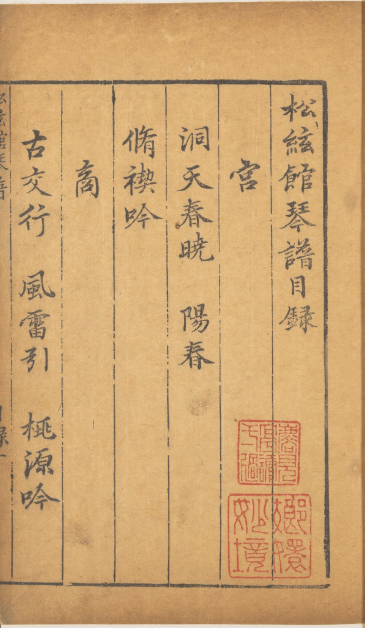 松絃館琴譜目録
宮
洞天春曉 陽春
脩禊吟
商
古交行 風雷引 桃源吟
松絃館琴譜
嫏嬛妙境